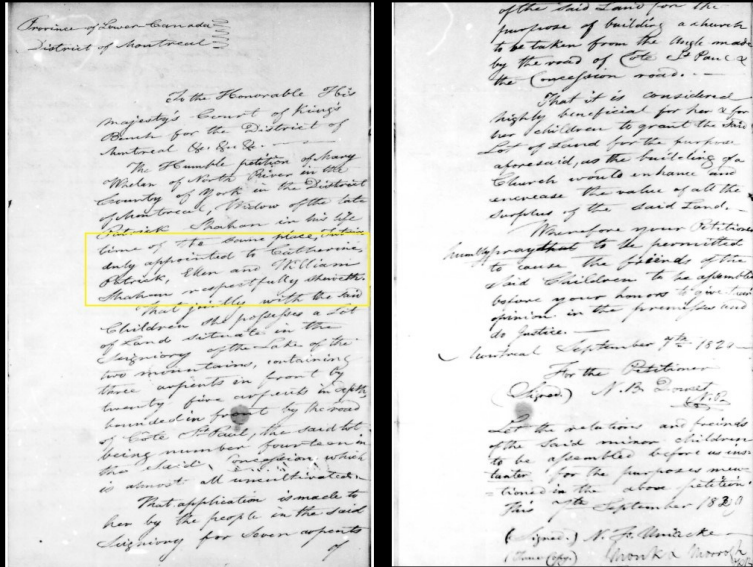 Province of Lower Canada
District of Montreal
To the Honorable His
Majesty's Court of King's
Bench for the District of
Montreal &c. &c. &c.
The Humble petition of Mary
Whelan of North River in the
County of York in the District
of Montreal, Widow of the late
Patrick Shahan in his life
time of the same place, Tutrix
duly appointed to Catherine,
Patrick, Ellen and William
Shahan respectfully sheweth.
That jointly with the said
Children she possesses a Lot
of Land situate in the
Seigniory of the Lake of the
two mountains, containing
three arpents in front by
twenty five arpents in depth
bounded in front by the road
of Cote St Paul, the said lot
being number fourteen in
the said Concession which
is almost all uncultivated.
That application is made to
her by the people in the said
Seigniory for seven arpents
of
of the said Land for the
purpose of building a church
to be taken from the Angle made
by the road of Cote St Paul &
the Concession road.
That it is considered
highly beneficial for her & for
her children to grant the said
Lot of Land for the purpose
aforesaid, as the building of a
Church would enhance and
encrease the value of all the
surplus of the said Land.
Wherefore your Petitioner
humbly prays that to be permitted
to cause the friends of the
said Children to be assembled
before your honors to give their
opinion in the premises and
do Justice.
Montreal September 7th
For the Petitioner
(Signed) N. B. Doucet
N.P.
Let the relations and friends
of the said minor children
to be assembled before us ins
tanter for the purposes men
=tioned in the above petition.
This 7th September
(Signed.) N. F. Uniacke
(True Copy.) Monk & Morrogh